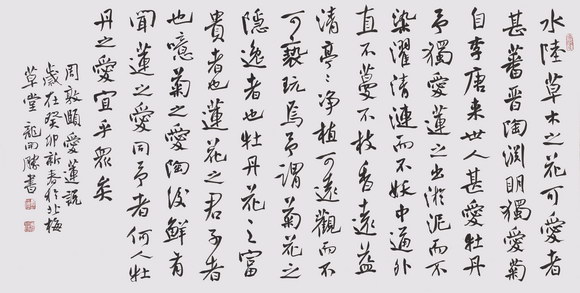 水陸草木之花可愛者
甚蕃晉陶淵明獨愛菊
自李唐来世人甚愛牡丹
予獨愛蓮之出淤泥而不
染濯清漣而不妖中通外
直不蔓不枝香遠益
清亭〻净植可遠觀而不
可褻玩焉予謂菊花之
隱逸者也牡丹花之富
貴者也蓮花之君子者
也噫菊之愛陶後鮮有
聞蓮之愛同予者何人牡
丹之愛宜乎眾矣
周敦頤愛蓮說
歲在癸卯新春於北梅
草堂 龍開勝書